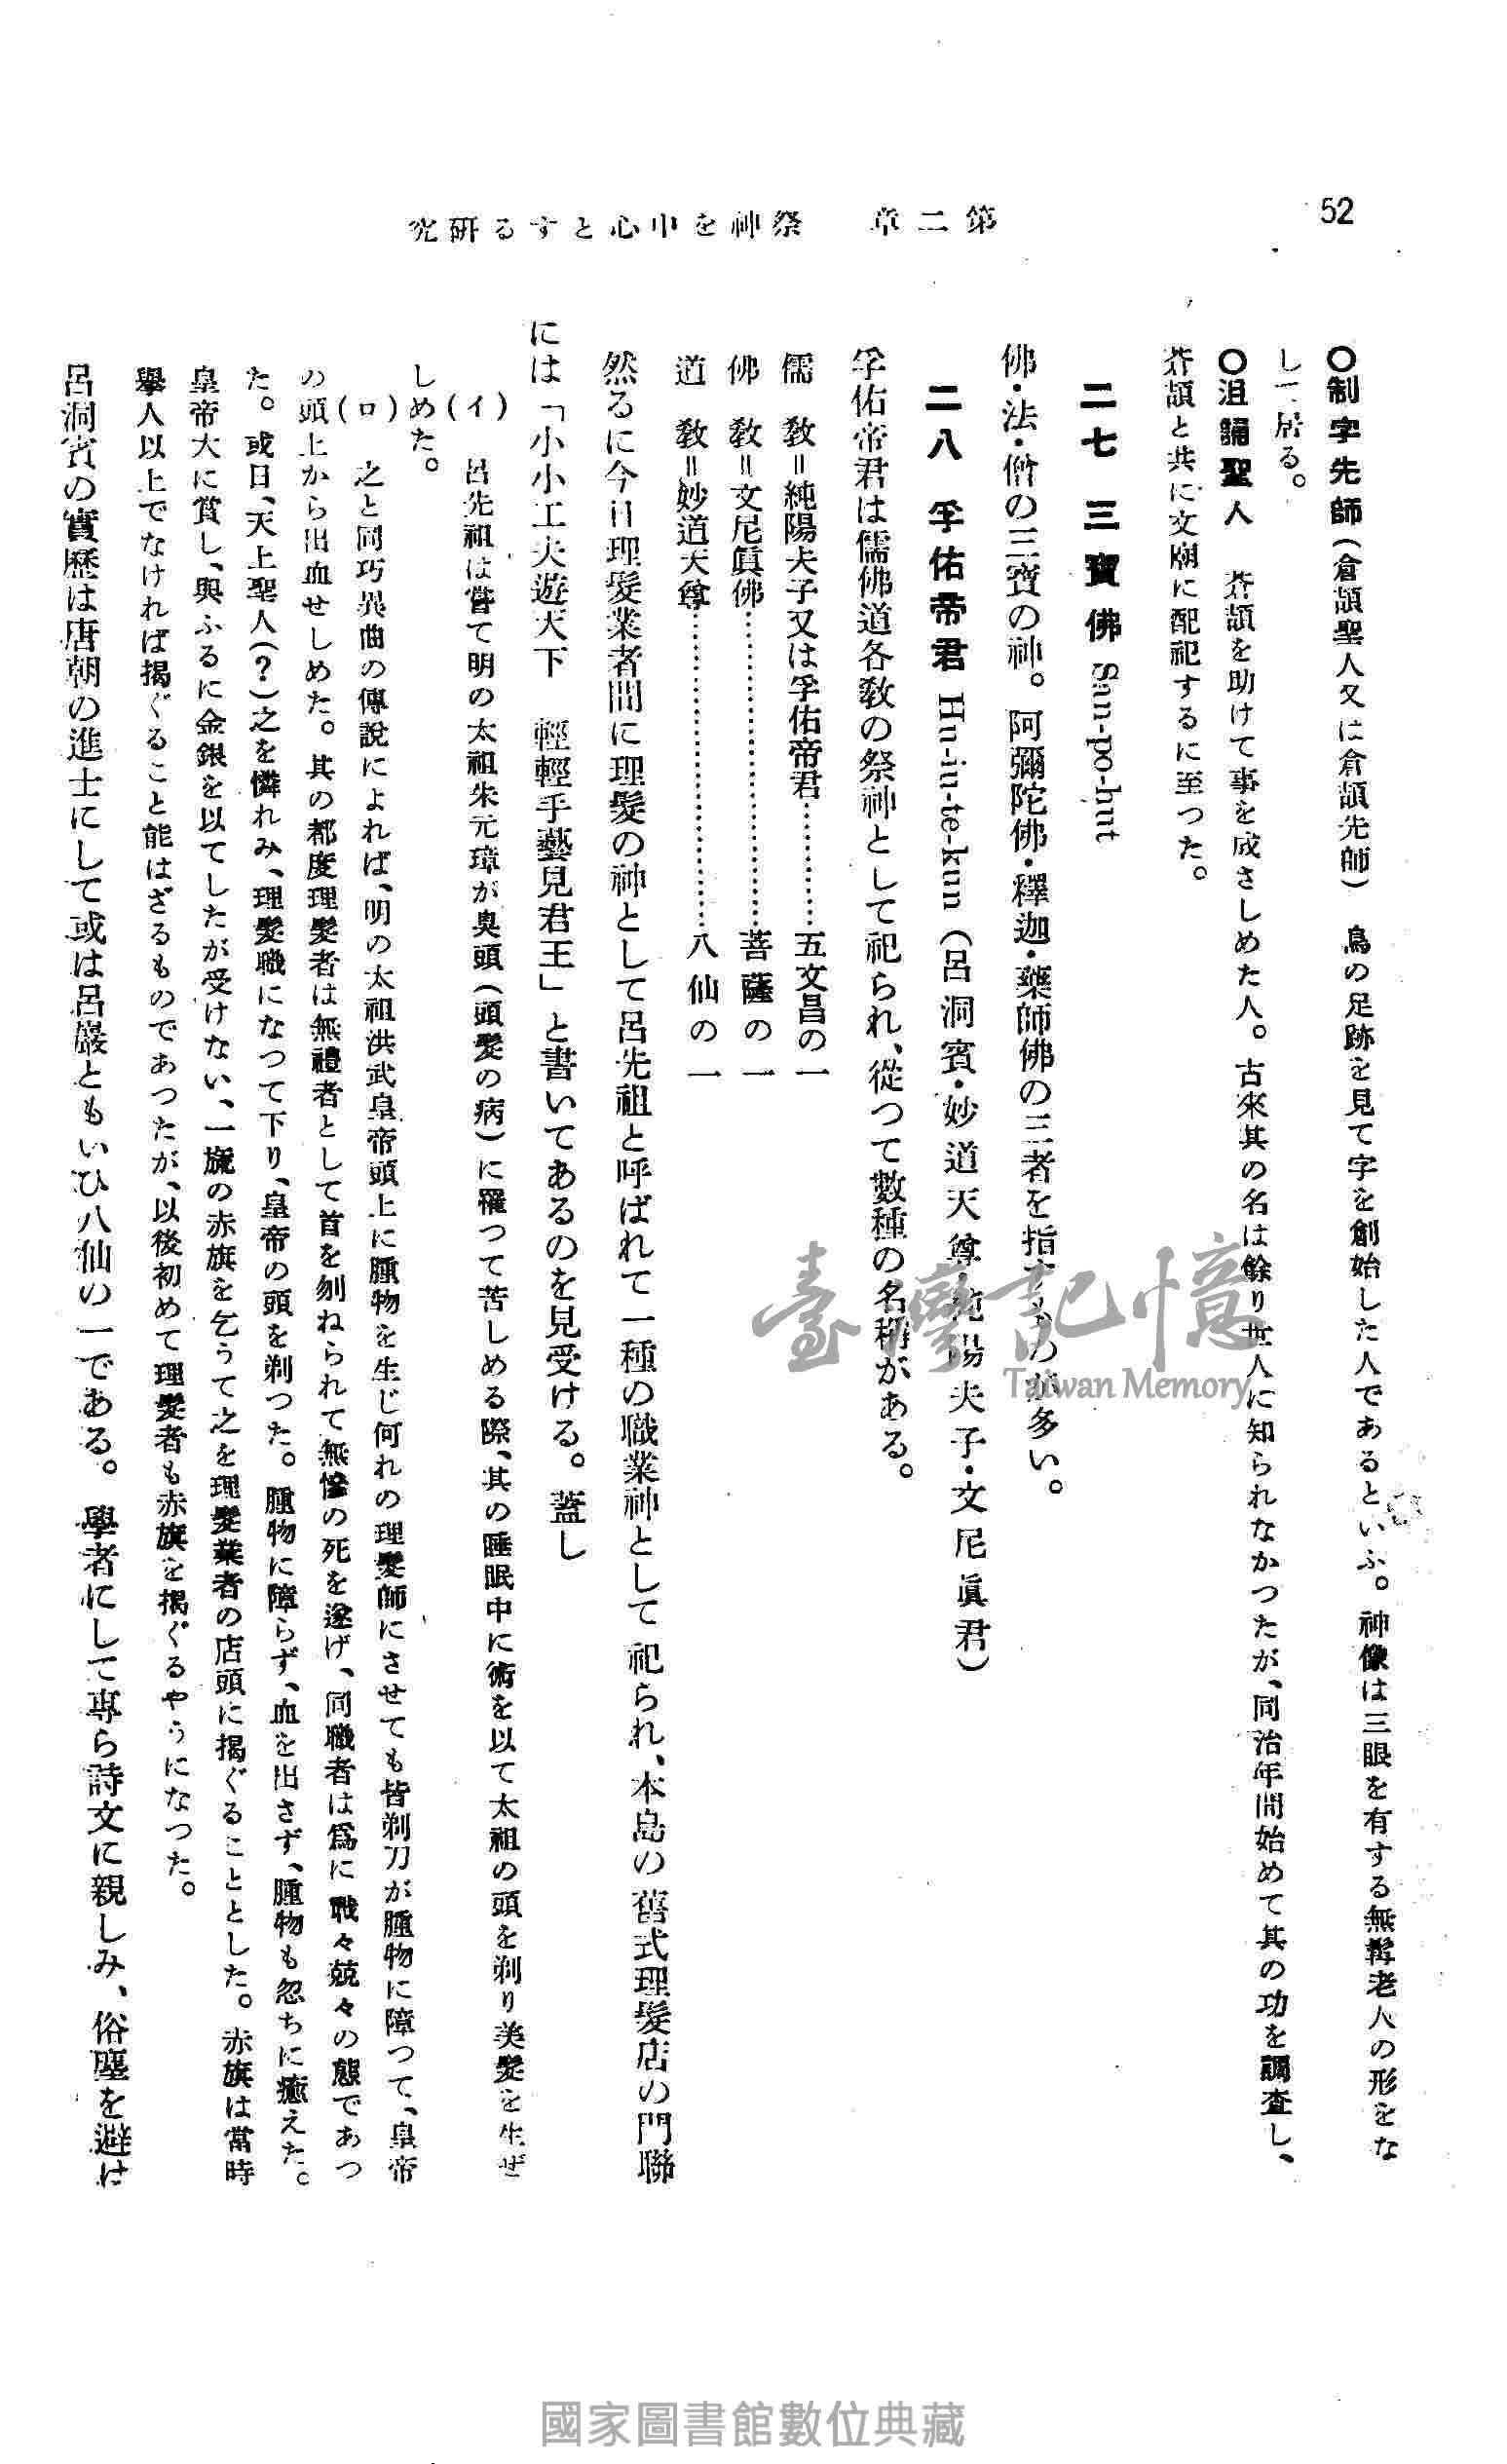 52
第二章 祭神を中心とする研究
〇制字先師(倉頡聖人又は倉頡先師) 鳥の足跡を見て字を創始した人であるといふ。神像は三眼を有する無髯老人の形をな
して居る。
〇沮誦聖人 蒼頡を助けて事を成さしめた人。古來其の名は餘り世人に知られなかつたが、同治年間始めて其の功を調査し、
蒼頡と共に文廟に配祀するに至つた。
二七 三寶佛 San-po-hut
佛・法・僧の三寶の神。阿彌陀佛・釋迦・藥師佛の三者を指すものが多い。
二八 孚佑帝君 Hu-iu-te-kun (呂洞賓・妙道天尊・純陽夫子・文尼眞君)
孚佑帝君は儒佛道各敎の祭神として祀られ、從つて數種の名稱がある。
儒 敎=純陽夫子又は孚佑帝君…………五文昌の一
佛 敎=文尼眞佛……………………………菩薩の一
道 敎=妙道天尊……………………………八仙の一
然るに今日理髮業者間に理髮の神として呂先祖と呼ばれて一種の職業神として祀られ、本島の舊式理髮店の門聯
には「小小工夫遊天下 輕輕手藝見君王」と書いてあるのを見受ける。蓋し
(イ) 呂先祖は嘗て明の太祖朱元璋が臭頭(頭髮の病)に罹つて苦しめる際、其の睡眠中に術を以て太祖の頭を剃り美髮を生ぜ
しめた。
(ロ) 之と同巧異曲の傳說によれば、明の太祖洪武皇帝頭上に腫物を生じ何れの理髮師にさせても皆剃刀が腫物に障つて、皇帝
の頭上から出血せしめた。其の都度理髮者は無禮者として首を刎ねられて無慘の死を遂げ、同職者は爲に戰々兢々の態であつ
た。或日、天上聖人(?)之を憐れみ、理髮職になつて下り、皇帝の頭を剃つた。腫物に障らず、血を出さず、腫物も忽ちに癒えた。
皇帝大に賞し、與ふるに金銀を以てしたが受けない、一旒の赤旗を乞うて之を理髮業者の店頭に揭ぐることとした。赤旗は當時
擧人以上でなければ揭ぐること能はざるものであつたが、以後初めて理髮者も赤旗を揭ぐるやうになつた。
呂洞賓の實歷は唐朝の進士にして或は呂巖ともいひ八仙の一である。學者にして專ら詩文に親しみ、俗塵を避け
臺灣記憶
Taiwan Memory
國家圖書館數位典藏